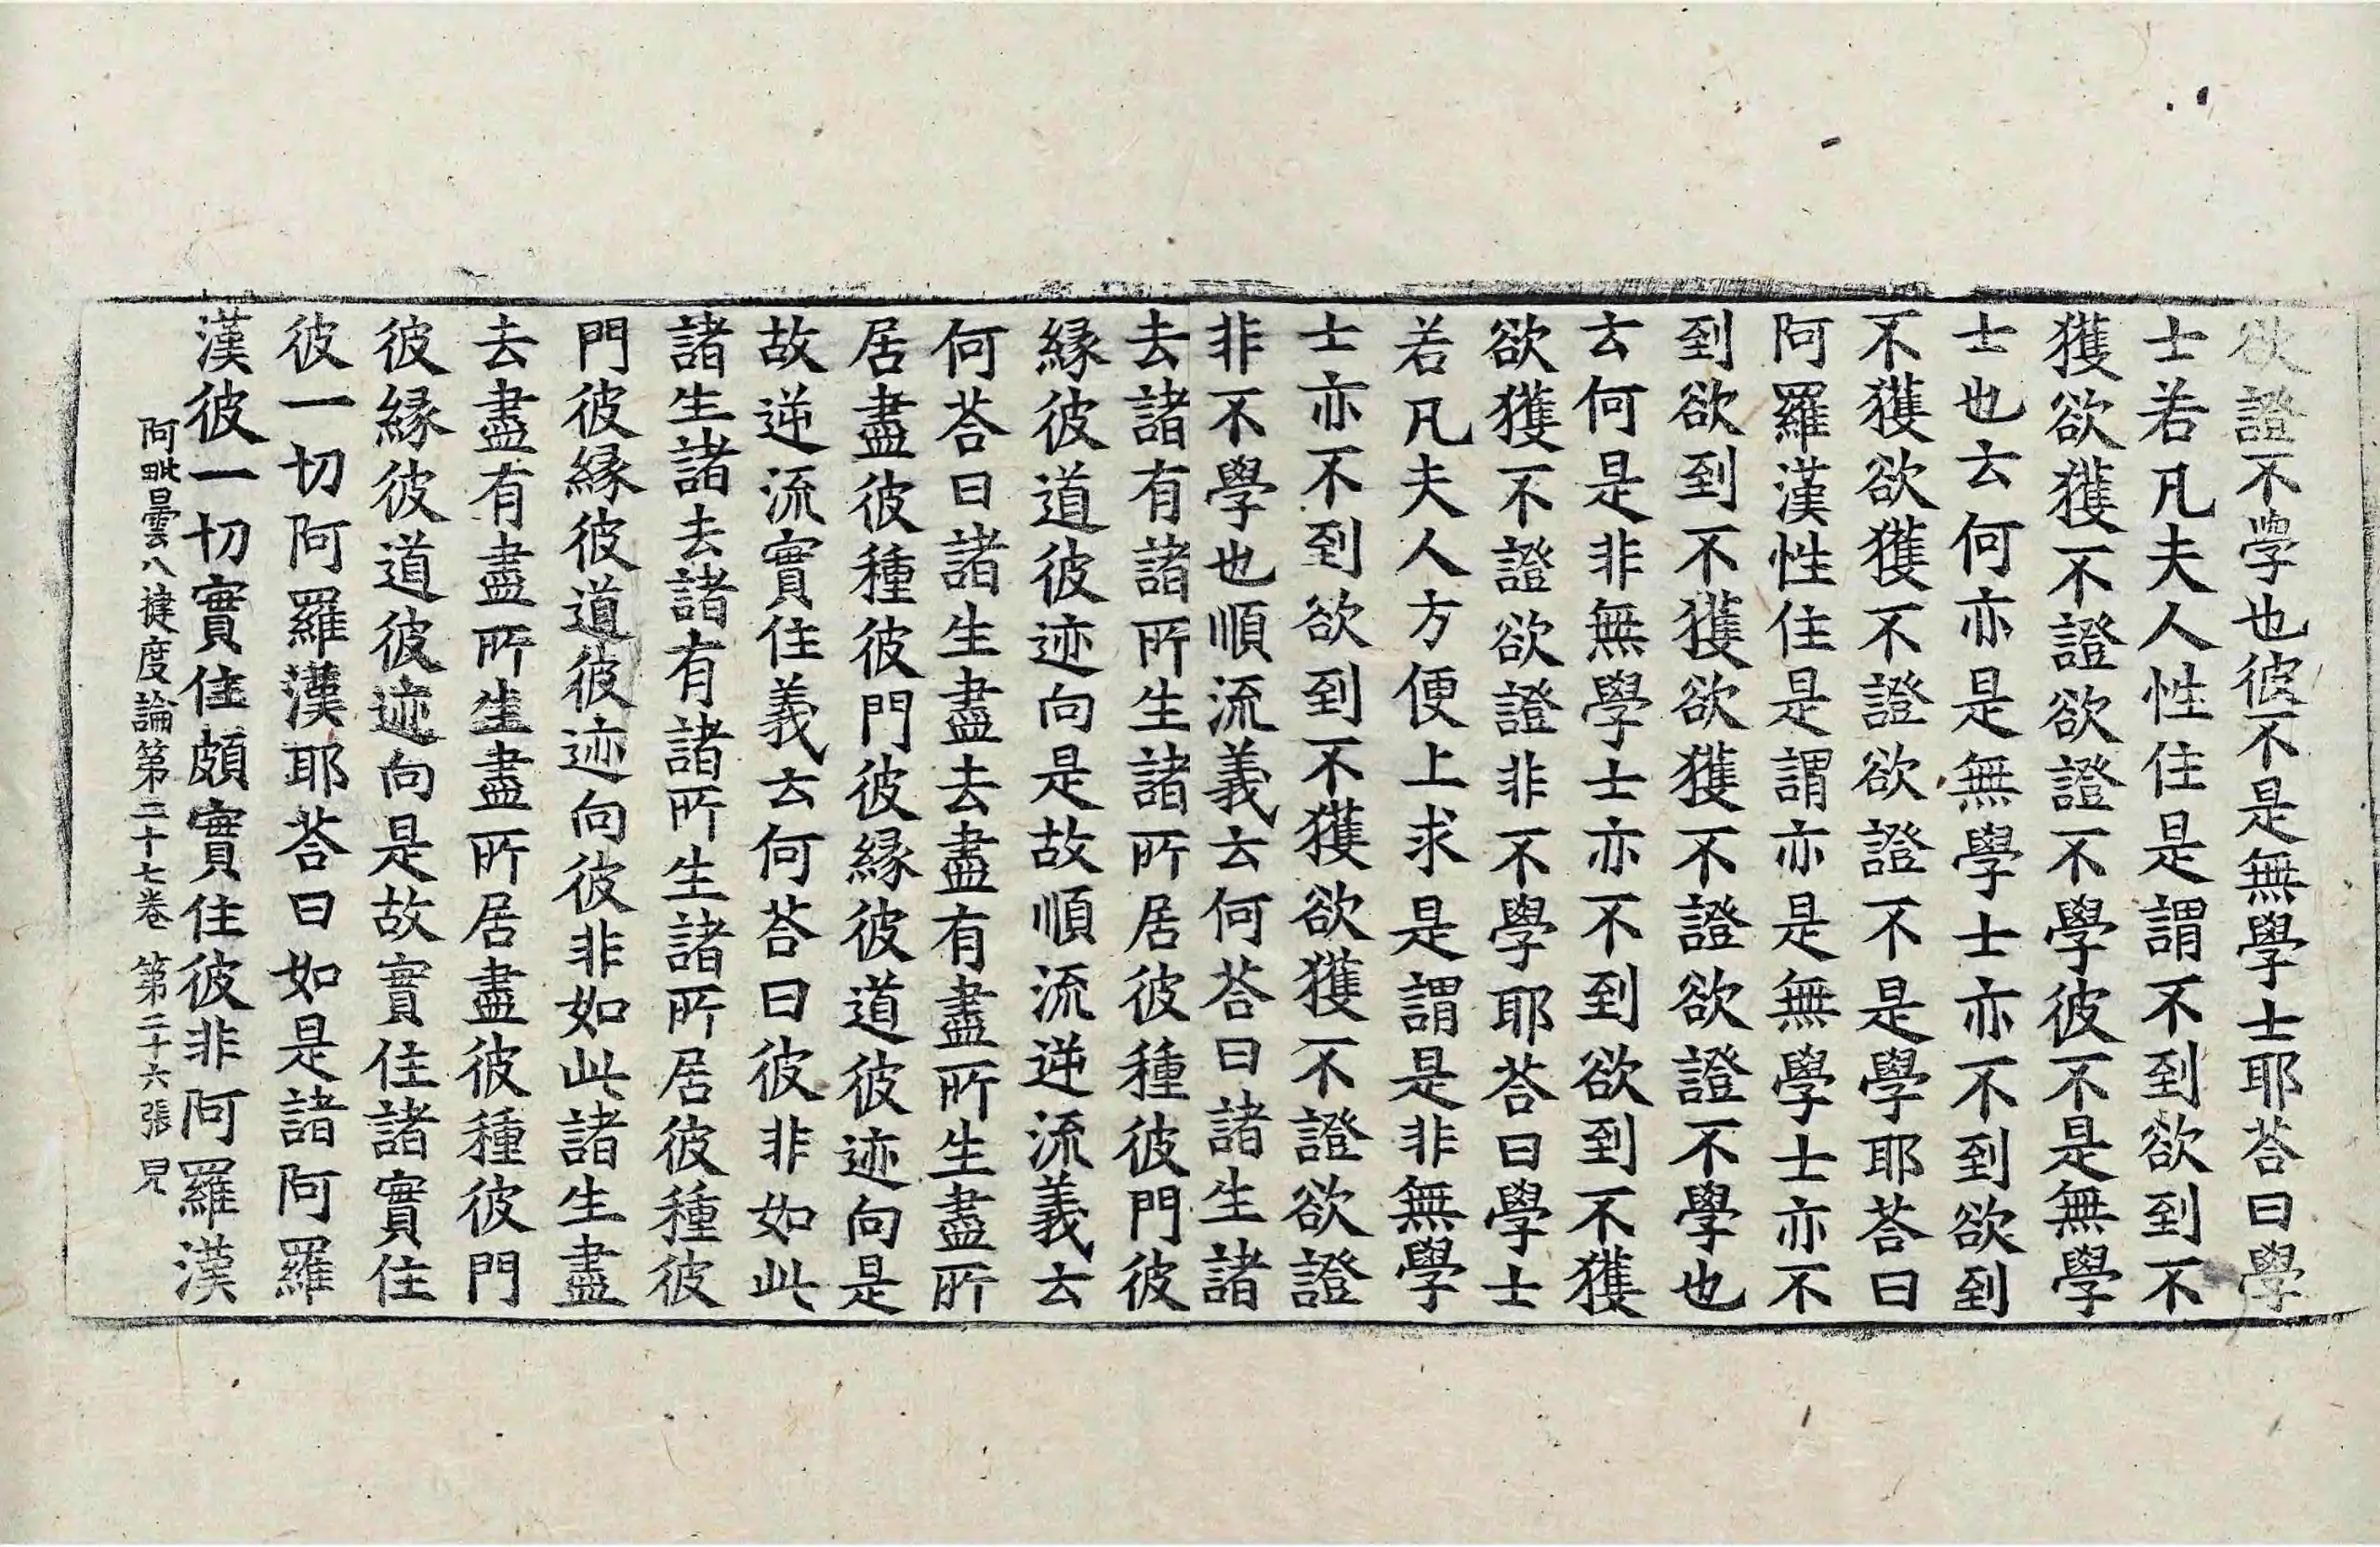 欲證不學也彼不是無學士耶荅曰學
士若凡夫人性住是謂不到欲到不
獲欲獲不證欲證不學彼不是無學
士也云何亦是無學士亦不到欲到
不獲欲獲不證欲證不是學耶荅曰
阿羅漢性住是謂亦是無學士亦不
到欲到不獲欲獲不證欲證不學也
云何是非無學士亦不到欲到不獲
欲獲不證欲證非不學耶荅曰學士
若凡夫人方便上求是謂是非無學
士亦不到欲到不獲欲獲不證欲證
非不學也順流義云何荅曰諸生諸
去諸有諸所生諸所居彼種彼門彼
緣彼道彼迹向是故順流逆流義云
何荅曰諸生盡去盡有盡所生盡所
居盡彼種彼門彼緣彼道彼迹向是
故逆流實住義云何荅曰彼非如此
諸生諸去諸有諸所生諸所居彼種彼
門彼緣彼道彼迹向彼非如此諸生盡
去盡有盡所生盡所居盡彼種彼門
彼緣彼道彼迹向是故實住諸實住
彼一切阿羅漢耶荅曰如是諸阿羅
漢彼一切實住頗實住彼非阿羅漢
阿毗曇八揵度論第二十七卷 第二十六張 皃